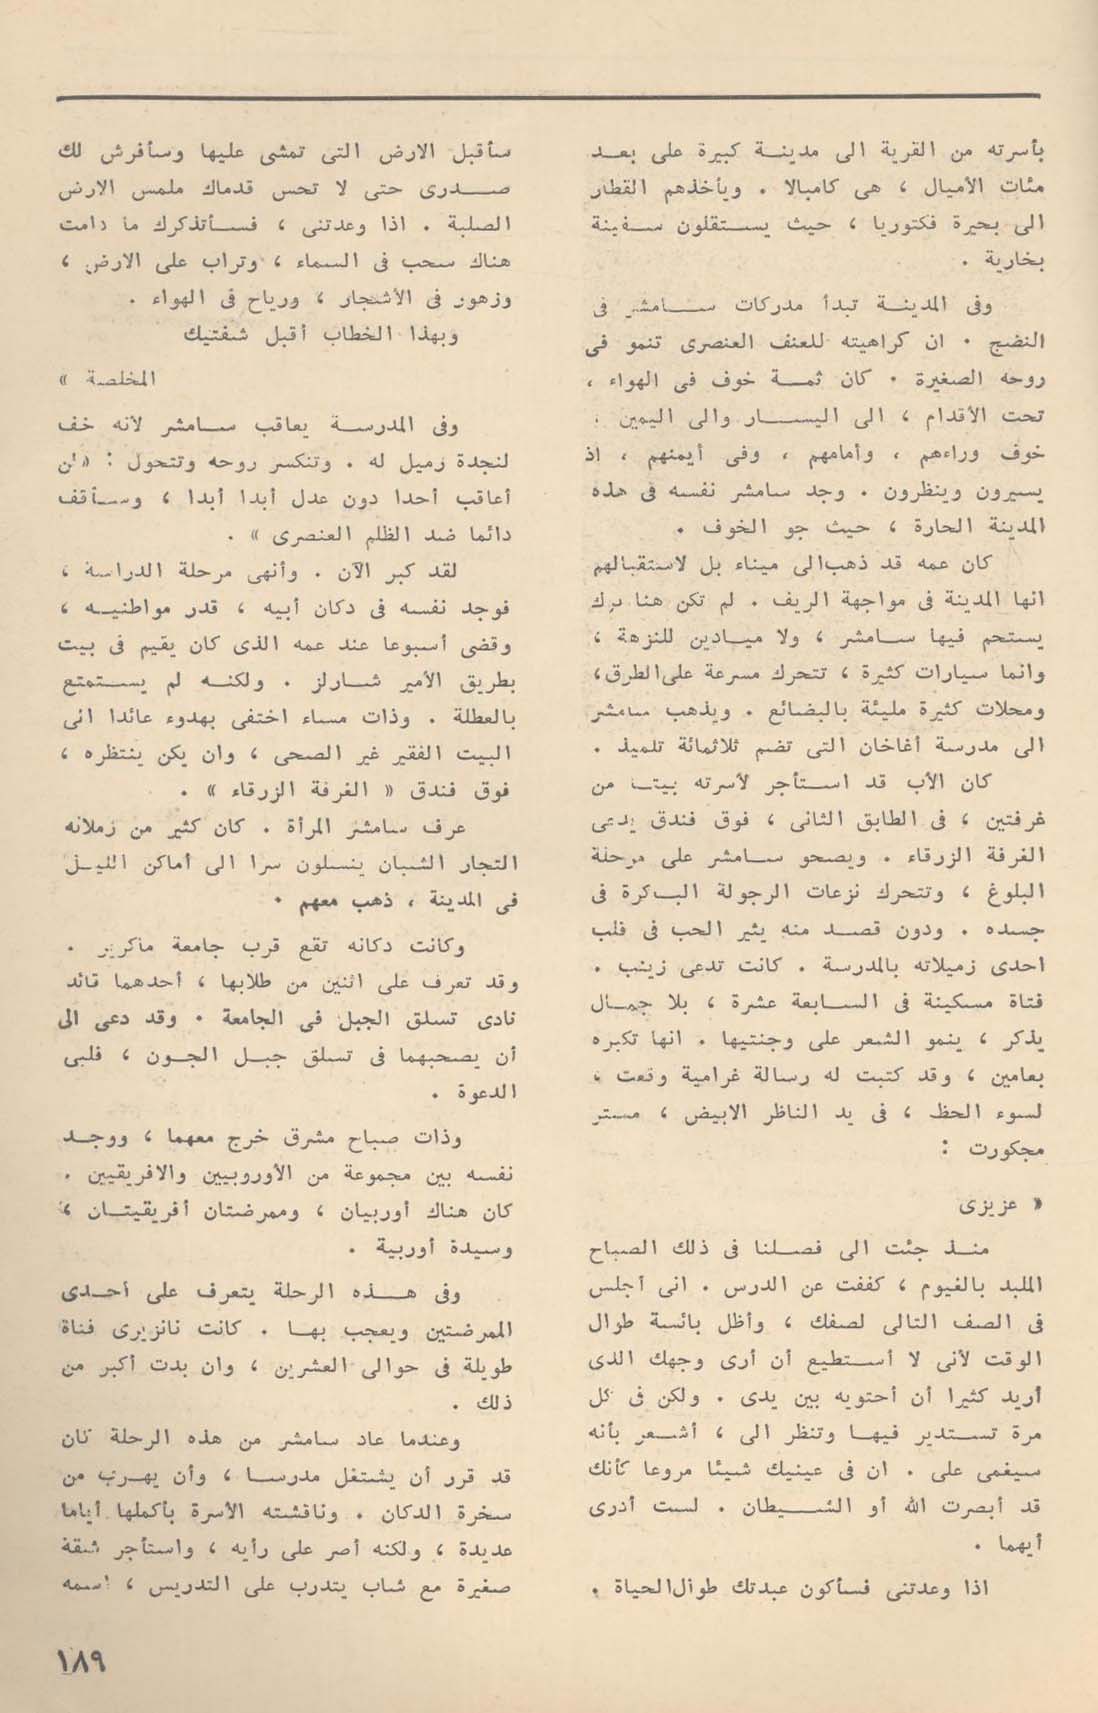 بأسرته من القرية الى مدينة كبيرة على بعد
مئات الأميال ، هى كامبالا . ويأخذهم القطار
الى بحيرة فكتوريا ، حيث يستقلون سفينة
بخارية .
وفى المدينة تبدأ مدركات سامشر فى
النضج . ان كراهيته للعنف العنصرى تنمو فى
روحه الصغيرة . كان ثمة خوف فى الهواء ،
تحت الأقدام ، الى اليسار والى اليمين ،
خوف وراءهم ، وأمامهم ، وفى أيمنهم ، اذ
يسيرون وينظرون . وجد سامشر نفسه فى هذه
المدينة الحارة ، حيث جو الخوف .
كان عمه قد ذهب الى ميناء بل لاستقبالهم
انها المدينة فى مواجهة الريف . لم تكن هنا برك
يستحم فيها سامشر ، ولا ميادين للنزهة ،
وانما سيارات كثيرة ، تتحرك مسرعة على الطرق ،
ومحلات كثيرة مليئة بالبضائع . ويذهب سامشر
الى مدرسة أغاخان التى تضم ثلاثمائة تلميذ .
كان الأب قد استأجر لأسرته بيتا من
غرفتين ، فى الطابق الثانى ، فوق فندق يدعى
الغرفة الزرقاء . ويصحو سامشر على مرحلة
البلوغ ، وتتحرك نزعات الرجولة البـاكرة فى
جسده . ودون قصد منه يثير الحب فى قلب
احدى زميلاته بالمدرسة . كانت تدعى زينب .
فتاة مسكينة فى السابعة عشرة ، بلا جمال
يذكر ، ينمو الشعر على وجنتيها . انها تكبره
بعامين ، وقد كتبت له رسالة غرامية وقعت ،
لسوء الحظ ، فى يد الناظر الابيض ، مستر
مجكورت :
« عزيزى
منذ جئت الى فصلنا فى ذلك الصباح
الملبد بالغيوم ، كففت عن الدرس . انى أجلس
فى الصف التالى لصفك ، وأظل بائسة طوال
الوقت لأنى لا أستطيع أن أرى وجهك الذى
أريد كثيرا أن أحتويه بين يدى . ولكن فى كل
مرة تستدير فيها وتنظر الى ، أشعر بأنه
سيغمى على . ان فى عينيك شيئا مروعا كأنك
قد أبصرت الله أو الشيطان . لست أدرى
أيهما .
اذا وعدتنى فسأكون عبدتك طوال الحياة .
سأقبل الارض التى تمشى عليها وسأفرش لك
صدرى حتى لا تحس قدماك ملمس الارض
الصلبة . اذا وعدتنى ، فسأتذكرك ما دامت
هناك سحب فى السماء ، وتراب على الارض ،
وزهور فى الأشجار ، ورياح فى الهواء .
وبهذا الخطاب أقبل شفتيك
المخلصة »
وفى المدرسة يعاقب سامشر لأنه خف
لنجدة زميل له . وتنكسر روحه وتتحول : « لن
أعاقب أحدا دون عدل أبدا أبدا ، وسأقف
دائما ضد الظلم العنصرى » .
لقد كبر الآن . وأنهى مرحلة الدراسة ،
فوجد نفسه فى دكان أبيه ، قدر مواطنيه ،
وقضى أسبوعا عند عمه الذى كان يقيم فى بيت
بطريق الأمير شارلز . ولكنه لم يستمتع
بالعطلة . وذات مساء اختفى بهدوء عائدا الى
البيت الفقير غير الصحى ، وان يكن ينتظره ،
فوق فندق « الغرفة الزرقاء » .
عرف سامشر المرأة . كان كثير من زملائه
التجار الشبان ينسلون سرا الى أماكن الليل
فى المدينة ، ذهب معهم .
وكانت دكانه تقع قرب جامعة ماكرير .
وقد تعرف على اثنين من طلابها ، أحدهما قائد
نادى تسلق الجبل فى الجامعة . وقد دعى الى
أن يصحبهما فى تسلق جبل الجون ، فلبى
الدعوة .
وذات صباح مشرق خرج معهما ، ووجد
نفسه بين مجموعة من الأوروبيين والافريقيين .
كان هناك أوربيان ، وممرضتان أفريقيتان ،
وسيدة أوربية .
وفى هذه الرحلة يتعرف على احدى
الممرضتين ويعجب بها . كانت نانزيرى فتاة
طويلة فى حوالى العشرين ، وان بدت أكبر من
ذلك .
وعندما عاد سامشر من هذه الرحلة كان
قد قرر أن يشتغل مدرسا ، وأن يهرب من
سخرة الدكان . وناقشته الأسرة بأكملها أياما
عديدة ، ولكنه أصر على رأيه ، واستأجر شقة
صغيرة مع شاب يتدرب على التدريس ، اسمه
١٨٩